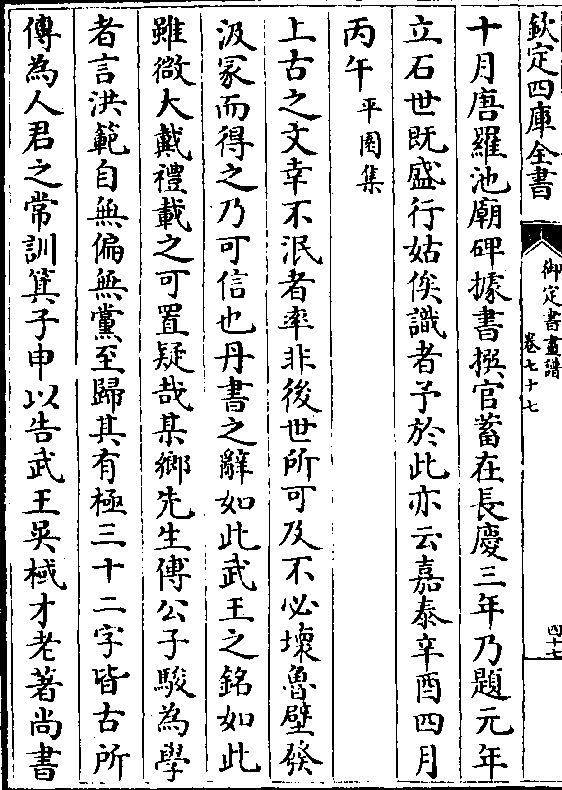 欽定四庫全書
御定書畫譜
卷七十七
四十七
十月唐羅池廟碑據書撰官蓄在長慶三年乃題元年
立石世既盛行姑俟識者予於此亦云嘉泰辛酉四月
丙午平園集
上古之文幸不泯者率非後世所可及不必壞魯壁發
汲冢而得之乃可信也丹書之辭如此武王之銘如此
雖微大戴禮載之可置疑哉某鄉先生傅公子駿為學
者言洪範自無偏無黨至歸其有極三十二字皆古所
傳為人君之常訓箕子申以告武王吳棫才老著尚書